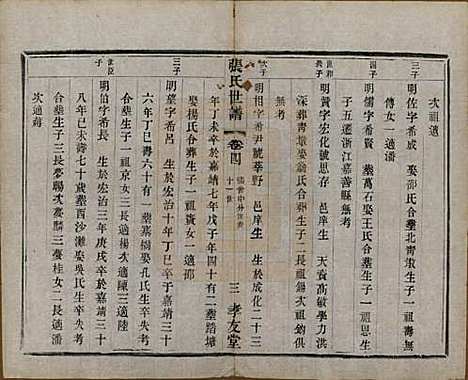 次祖適
三子
明佐字希威 娶邵氏合葬北青墩生子一祖毒無
傳女一適潘
四子
明儒字希賚 葬萬石娶王氏合葬生子一祖恩生
子五遷浙江嘉善縣無考
世和
長子
明賢字宏化號思存 邑庠生 天資高敏學力洪
深葬青墩娶翁氏合葬生子二長祖錫次祖鈞俱
無考
次子
明相字希尹號莘野 邑庠生 生於成化二十三
張氏世譜
卷四
十一世
三
孝友堂
年丁未卒於嘉靖七年戊子年四十有二葬踏塘
娶楊氏合葬生子一祖 女一適邵
三子
明望字希呂 生於宏治十年丁巳卒于嘉靖三十
六年丁巳壽六十有一葬嘉樹娶孔氏生卒失考
合葬生子一祖京女三長適楊次適陳三適陸
世臣
子
明伯字希長 生於宏治三年庚戌卒於嘉靖三十
八年己未壽七十葬西沙灘娶吳氏生卒失考
合葬生子三長夢暘次夢麟三夢桂女二長適潘
次適